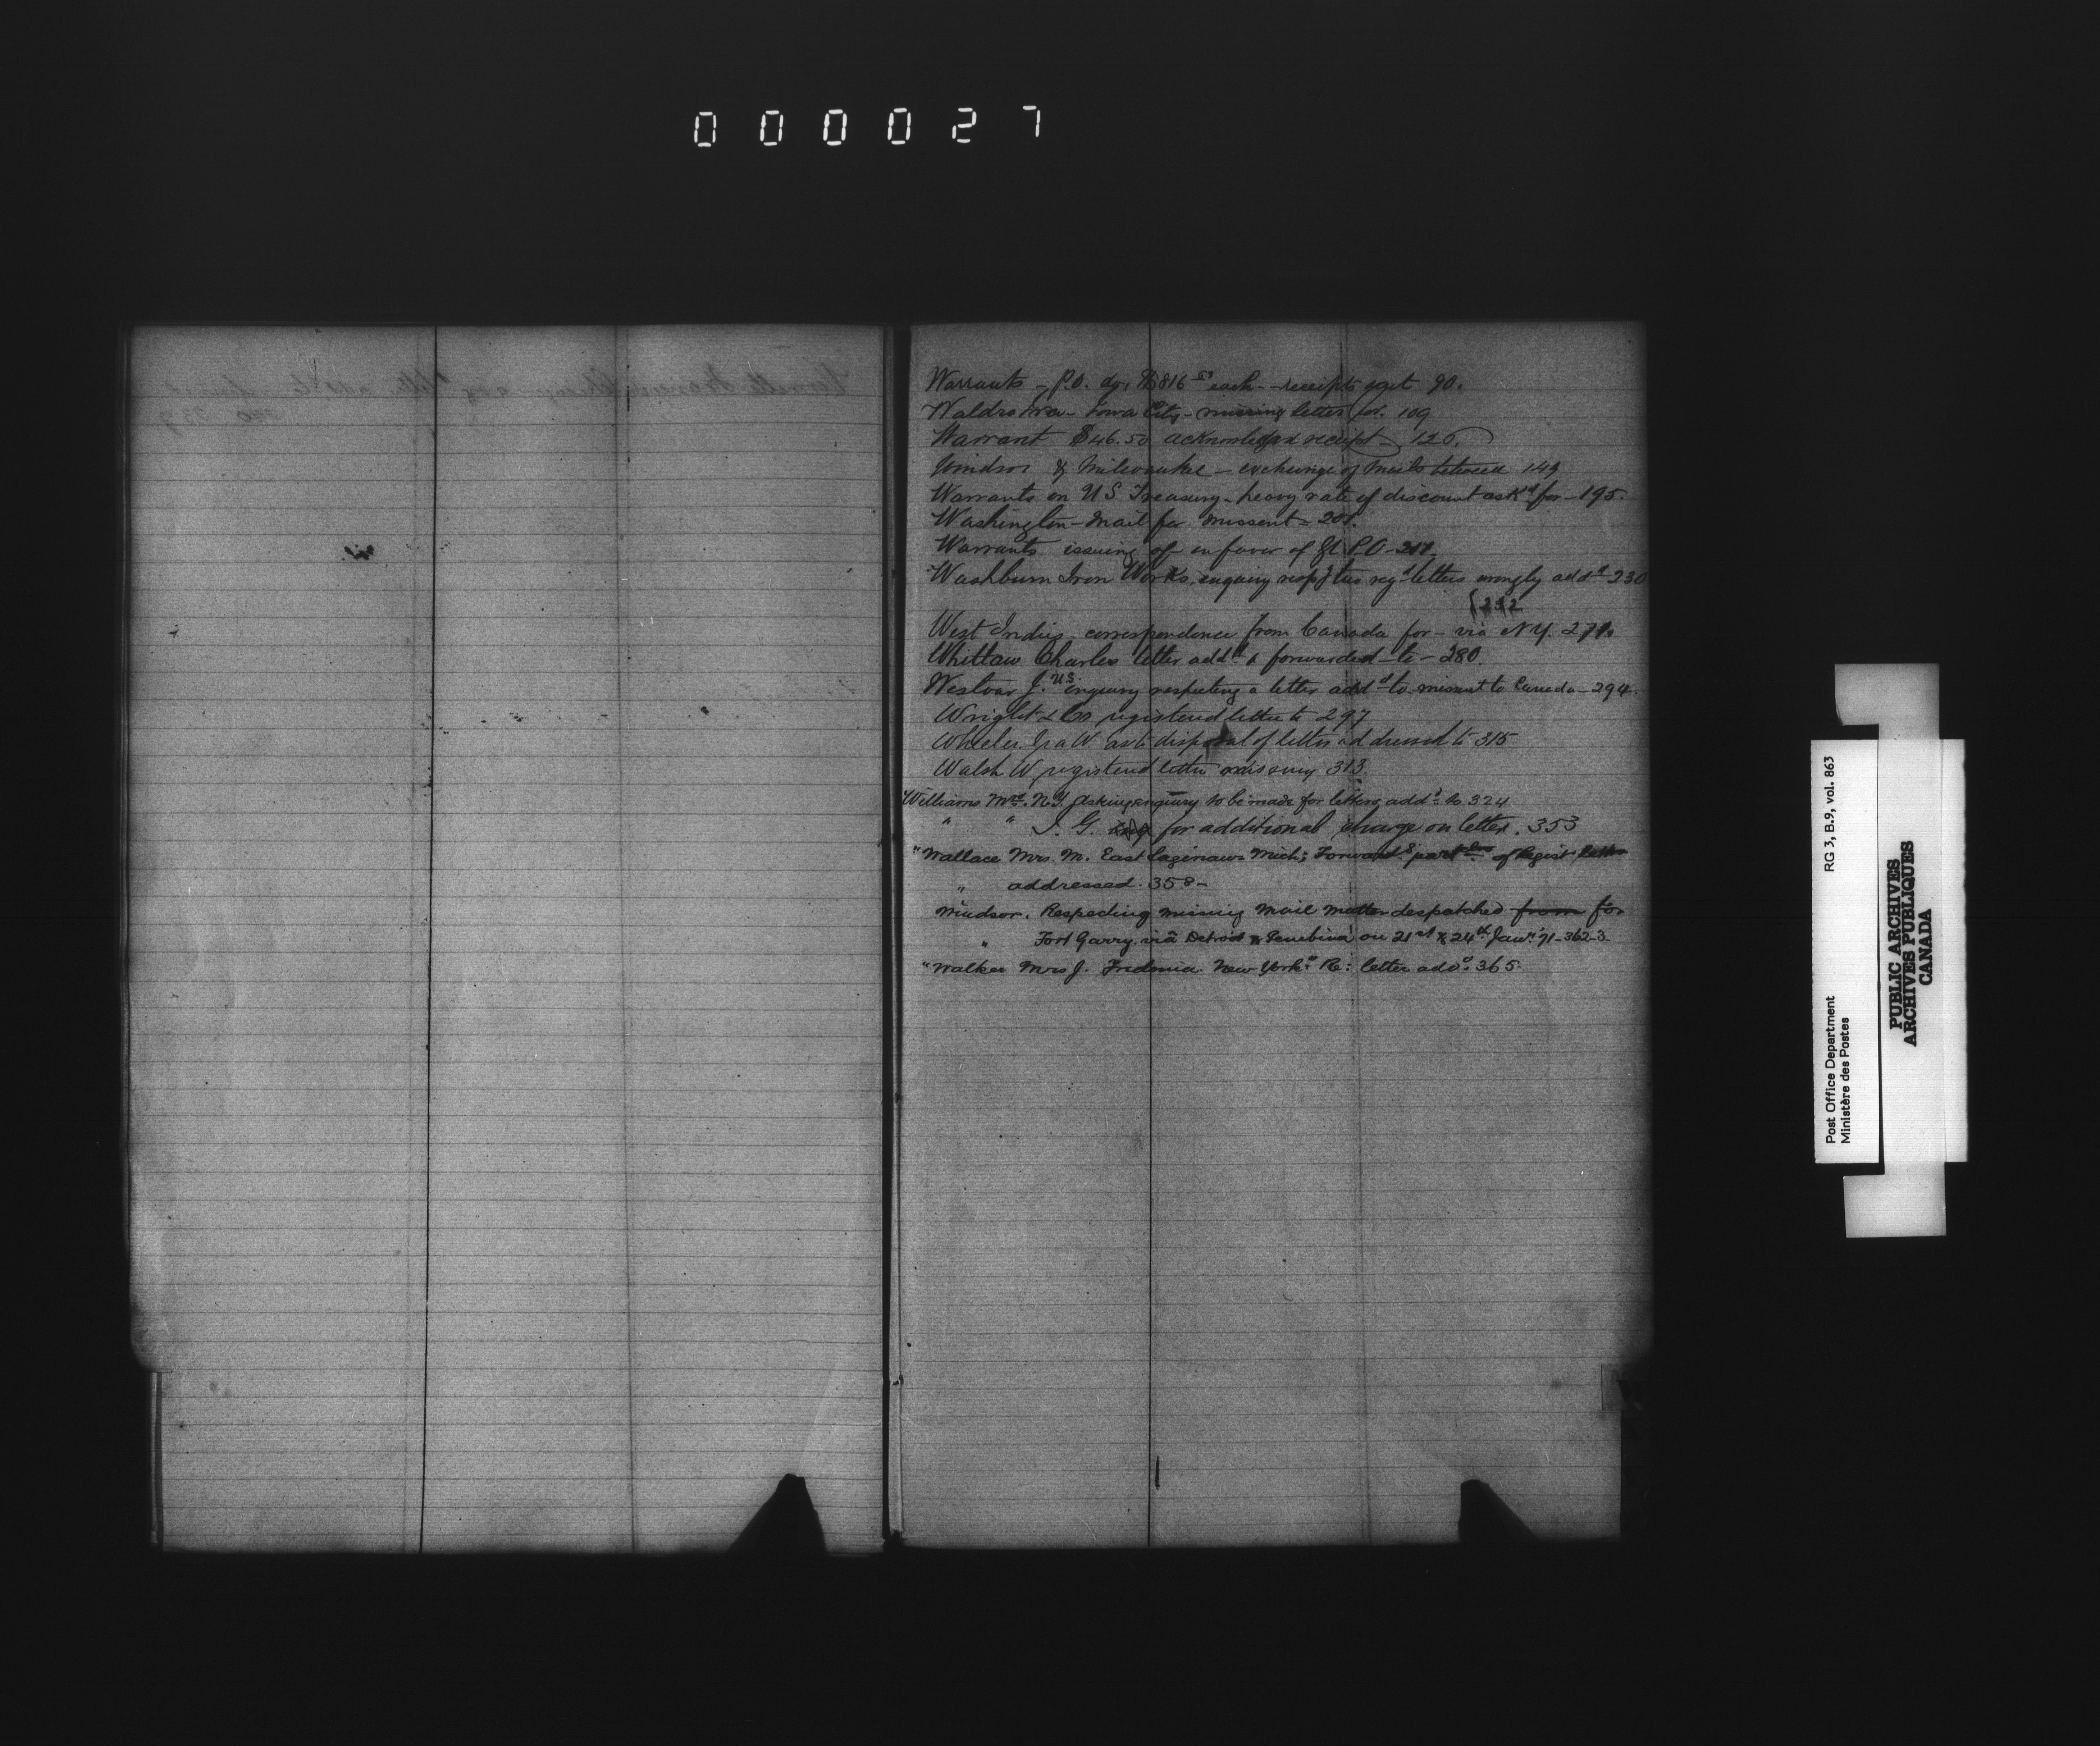 000027
Warrants - P.O. dft. $816 each - receipts 90.
Waldro Ira - Iowa City - missing letter for. 109
Warrant $46.50 acknowledged receipt - 126.
Windsor & Milwaukee - exchange of mails between 149
Warrants on U S Treasury - heavy rate of discount ask^d for - 195.
Washington - Mail for missent - 201.
Warrants issuing of in favor of P.O - 217.
Washburn Iron Works, enquiry resp^g two reg^d letters wrongly add^d 230
{232
West Indies - correspondence from Canada for - via N Y. 271.
Whitlaw Charles letter add^d & forwarded to - 280.
Westvar J. U.S. enquiry respecting a letter add^d to missent to Canada - 294.
Wright & Co registered letter to 297
Wheeler Ira W. as to disposal of letter addressed to 315
Walsh W registered letter missing 313.
Williams Mrs. N.Y. Asking enquiry to be made for letters add^d to 324
" " I. G. for additional charge on letter. 353
" Wallace Mrs. M. East Saginaw Mich; Forward^g part^lars of Regist letter
" addressed. 358 -
Windsor. Respecting missing Mail matter despatched from for
" Fort Garry, via Detroit & Pembina on 21st & 24th Jany. '71 - 362-3
" Walker Mrs J. Fredonia. New York. Re: letter add^d. 365.
RG 3, B.9, vol. 863
Post Office Department
Ministère des Postes
PUBLIC ARCHIVES
ARCHIVES PUBLIQUES
CANADA